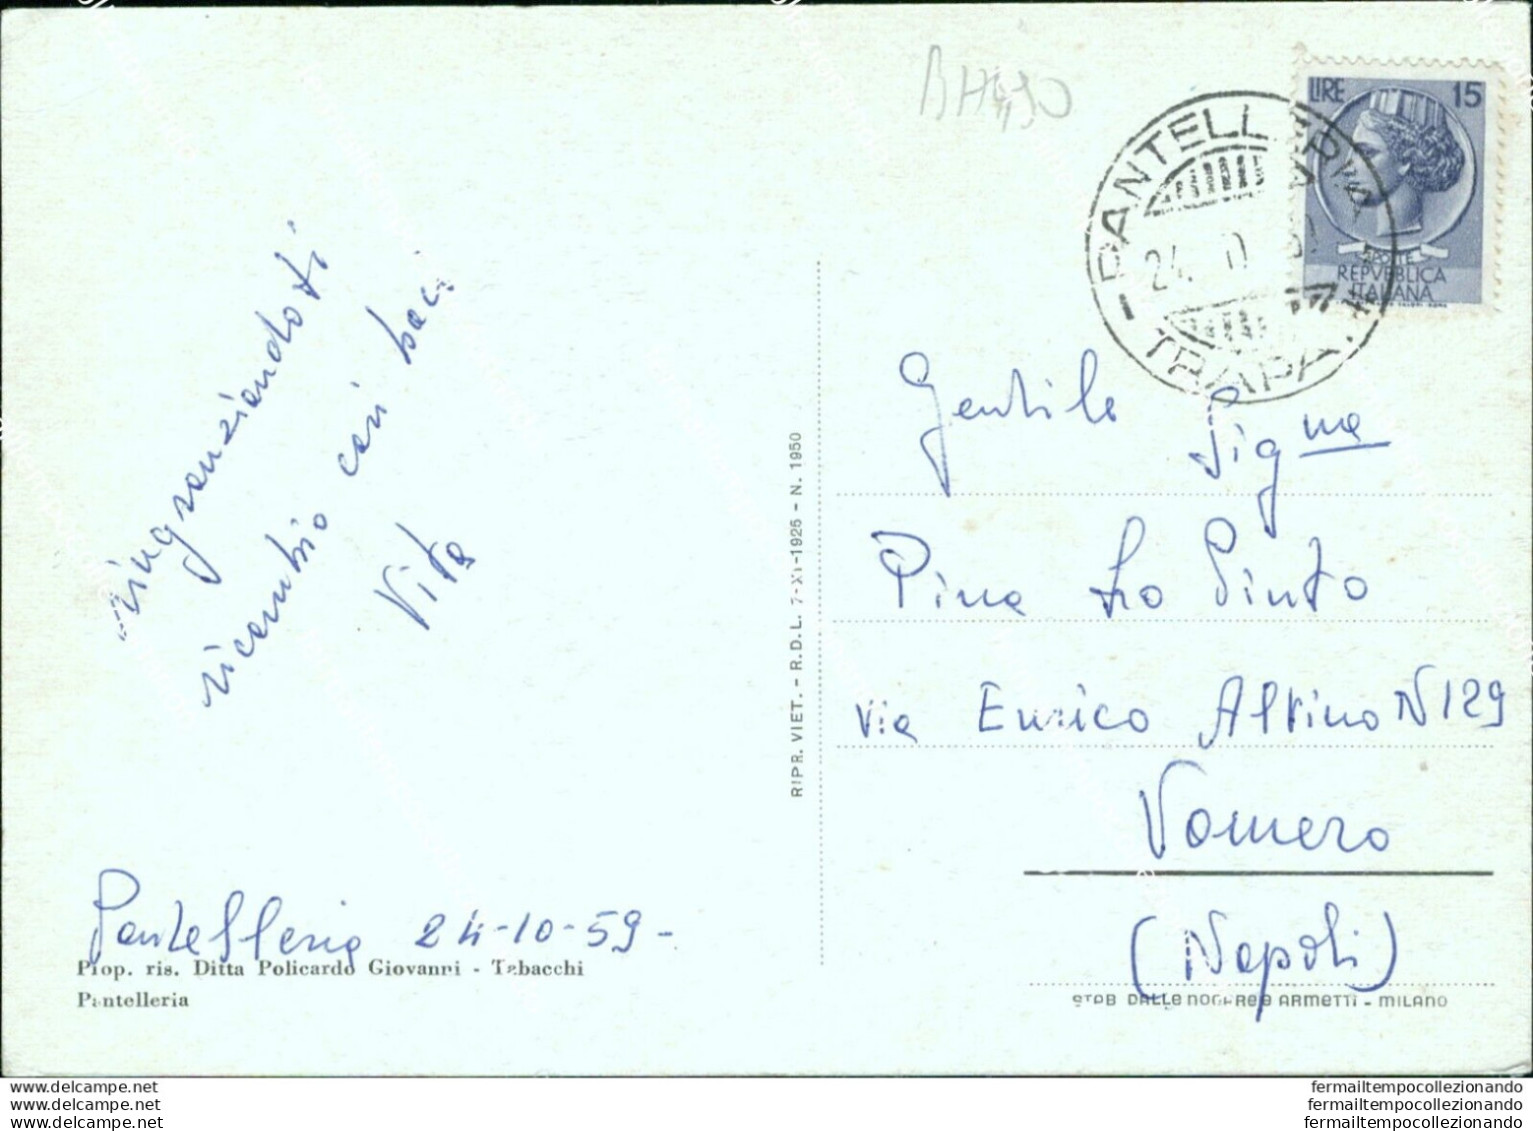 BH490
LIRE 15
REPVBBLICA
ITALIANA
PANTELLERIA
24.
TRAPA
ringranziandoti
ricambio cari baci
Vita
Pantelleria 24-10-59-
Prop. ris. Ditta Policardo Giovanni - Tabacchi
Pantelleria
RIPR. VIET. - R.D.L. 7-XI-1925 - N. 1950
Gentile Signa
Pina Lo Pinto
Via Enrico Alvino N 129
Vomero
(Napoli)
STAB DALLE NOGARE E ARMETTI - MILANO
www.delcampe.net
www.delcampe.net
www.delcampe.net
fermailtempocollezionando
fermailtempocollezionando
fermailtempocollezionando